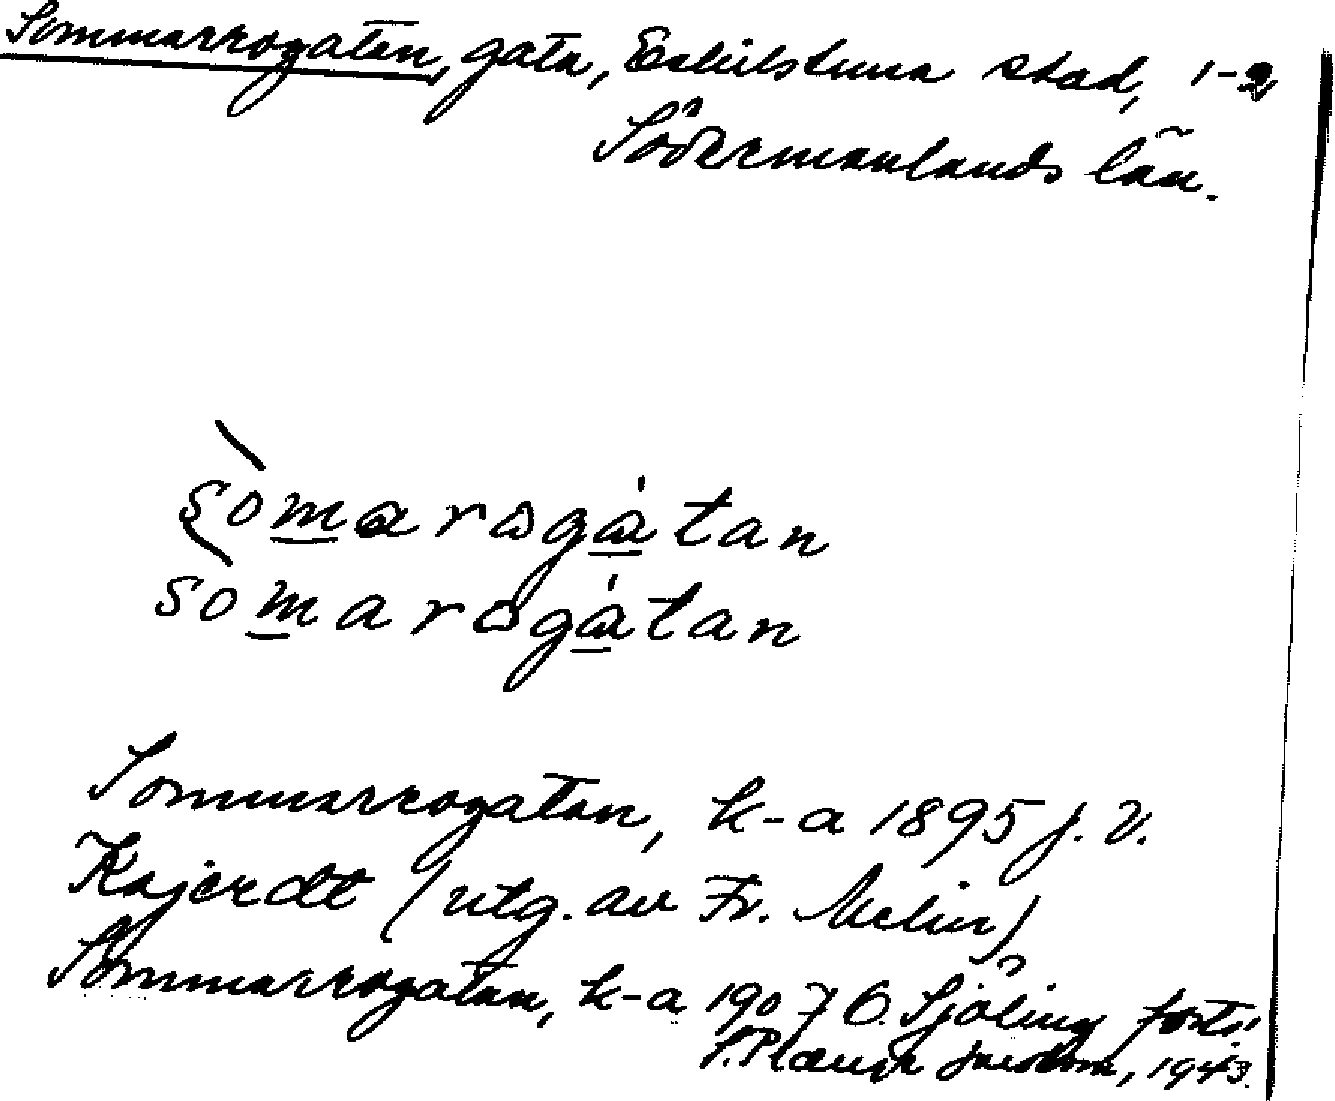 Sommarrogatan, gata, Eskilstuna stad, 1-2
Södermanlands län.
somarogatan
somarogatan
Sommarrogatan, k-a 1895 J. V.
Kajerdt (utg. av Fr. Melin)
Sommarrogatan, k-a 1907 O. Sjöling forts.
1943.